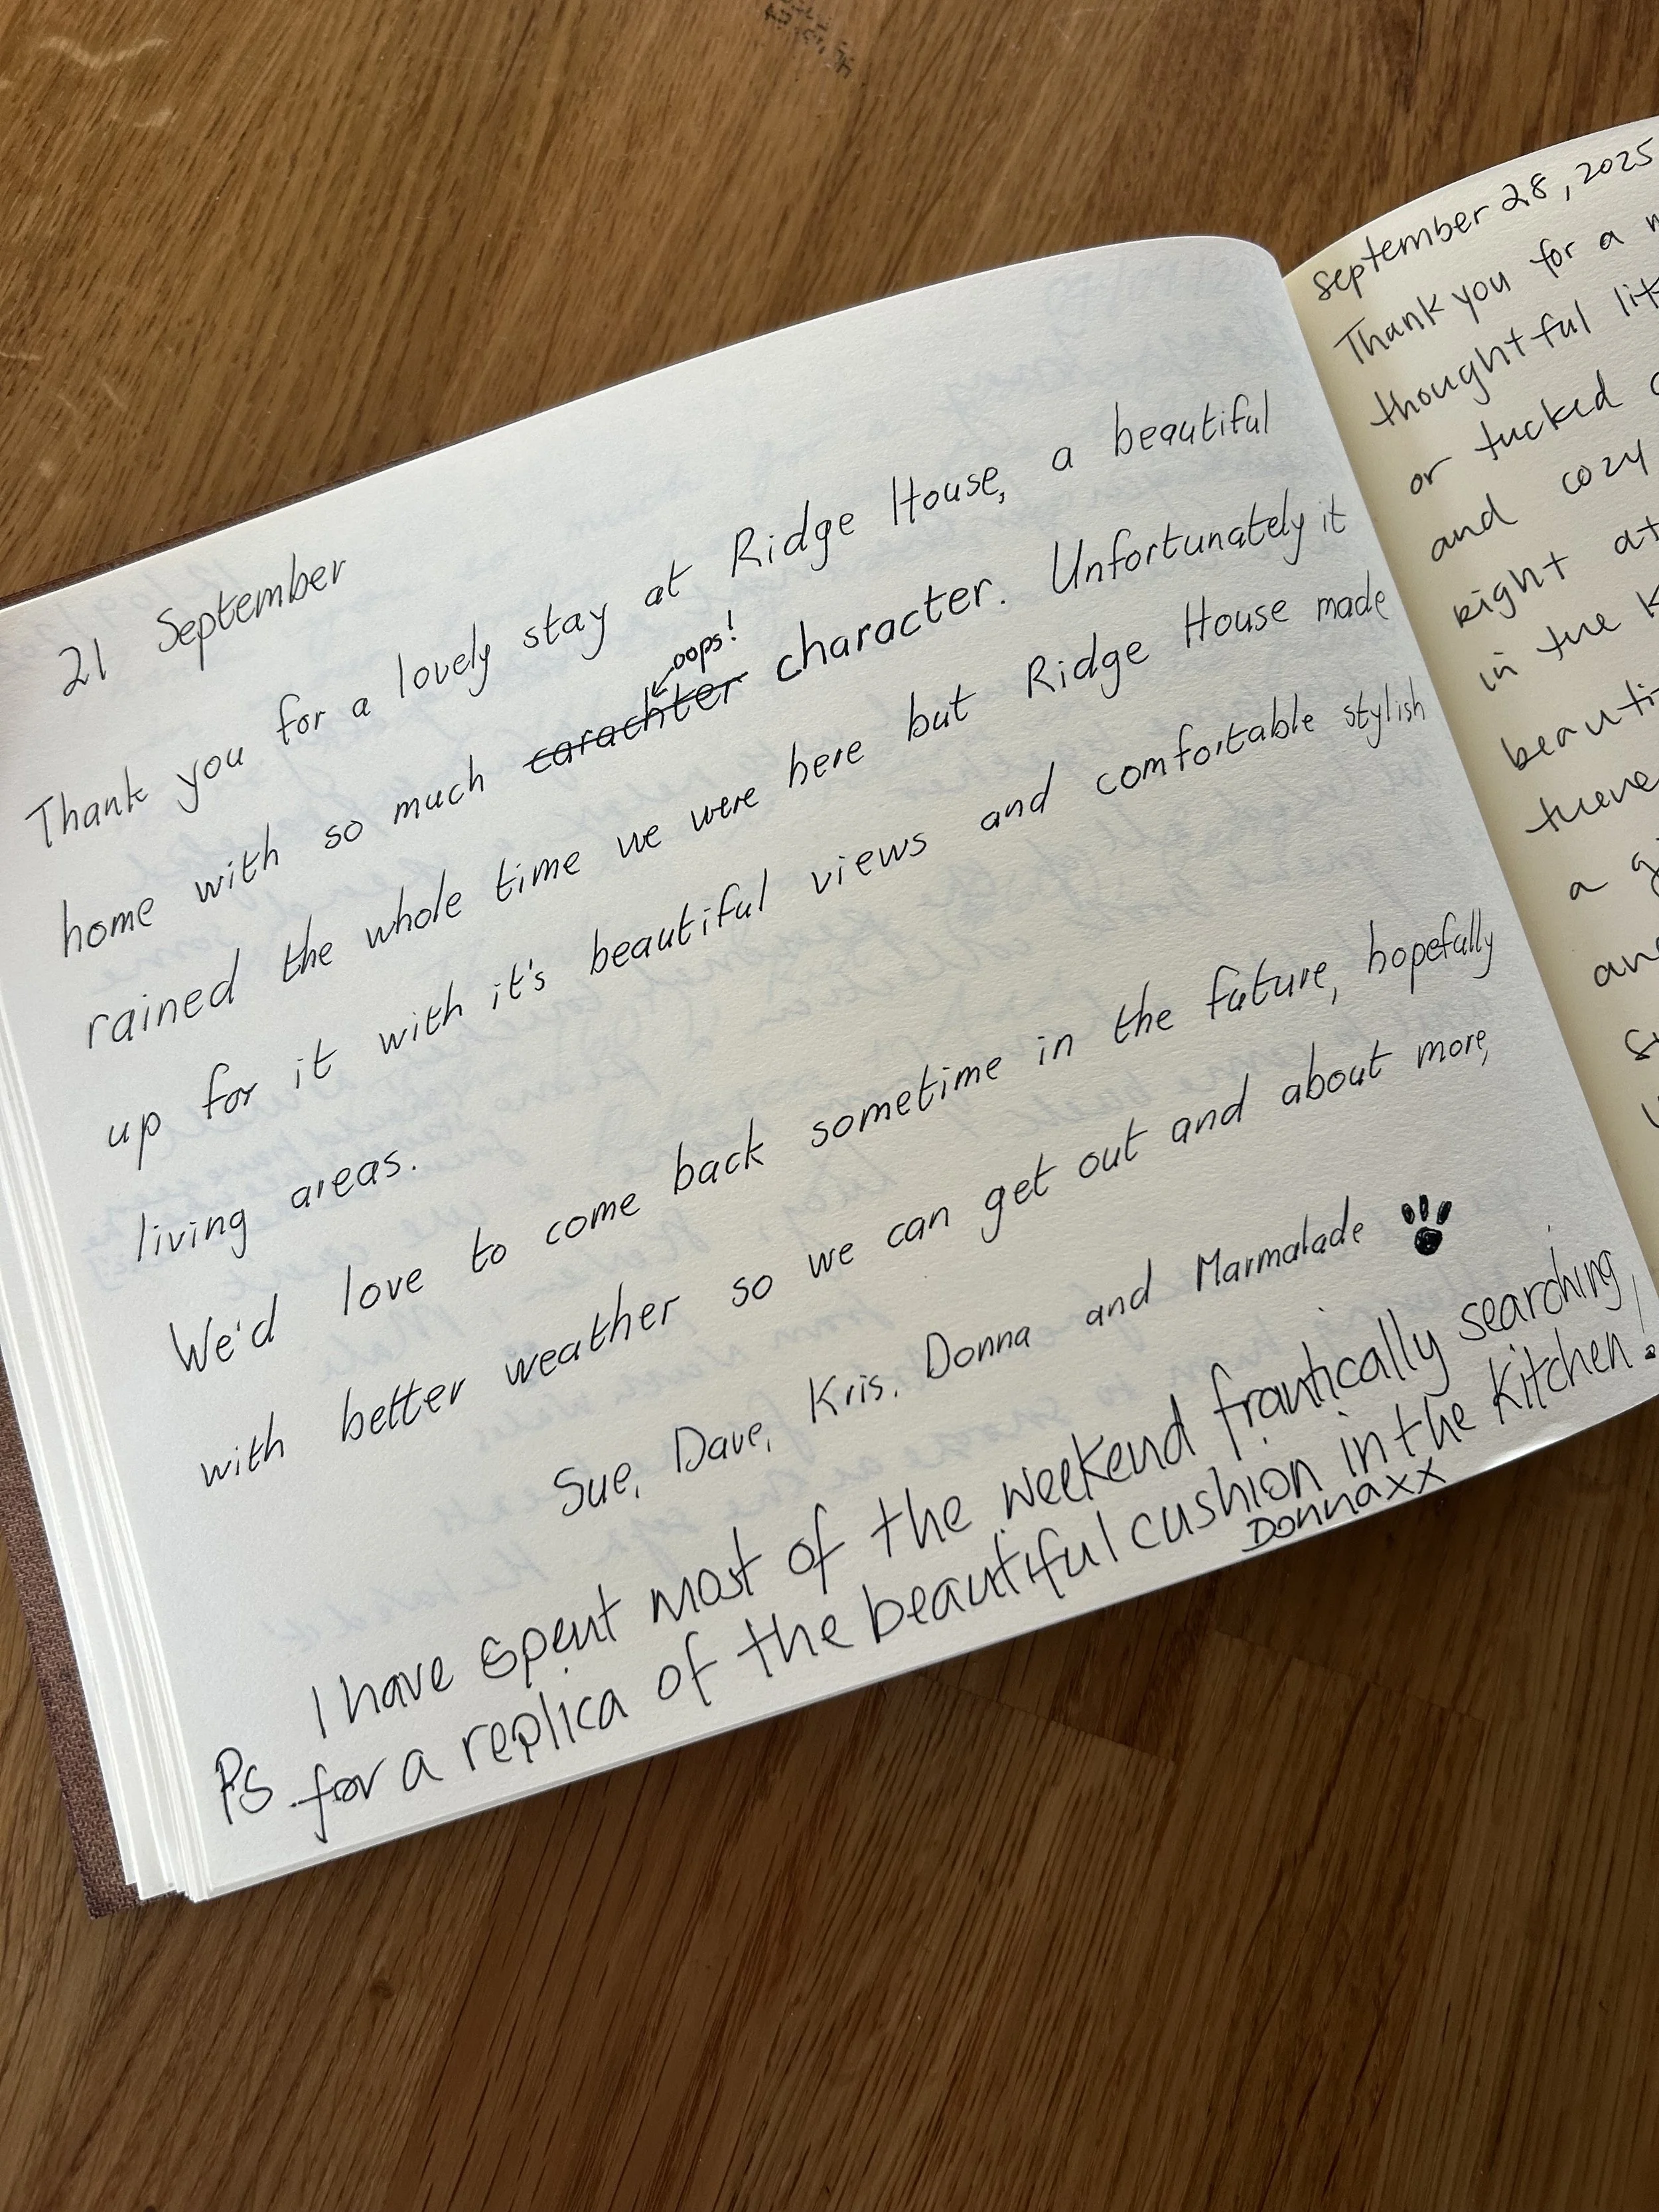 21 September
Thank you for a lovely stay at Ridge House, a beautiful
oops!
home with so much carachter character. Unfortunately it
rained the whole time we were here but Ridge House made
up for it with it's beautiful views and comfortable stylish
living areas.
We'd love to come back sometime in the future, hopefully
with better weather so we can get out and about more,
Sue, Dave, Kris, Donna and Marmalade
PS I have spent most of the weekend frantically searching,
for a replica of the beautiful cushion in the kitchen.
Donna xx
September 28, 2025
Thank you for a
thoughtful
or tucked
and cozy
right at
in the